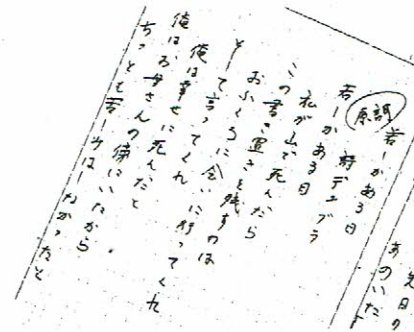 先日の
原詞 若しかある日
詩デュプラ
若しかある日
私が山で死んだら
この書き置きを残すのは
おふくろに会いに行ってくれ
そして言ってくれ
俺は幸せに死んだと
俺はお母さんの傍にいたから
ちっとも苦しみはしなかったと